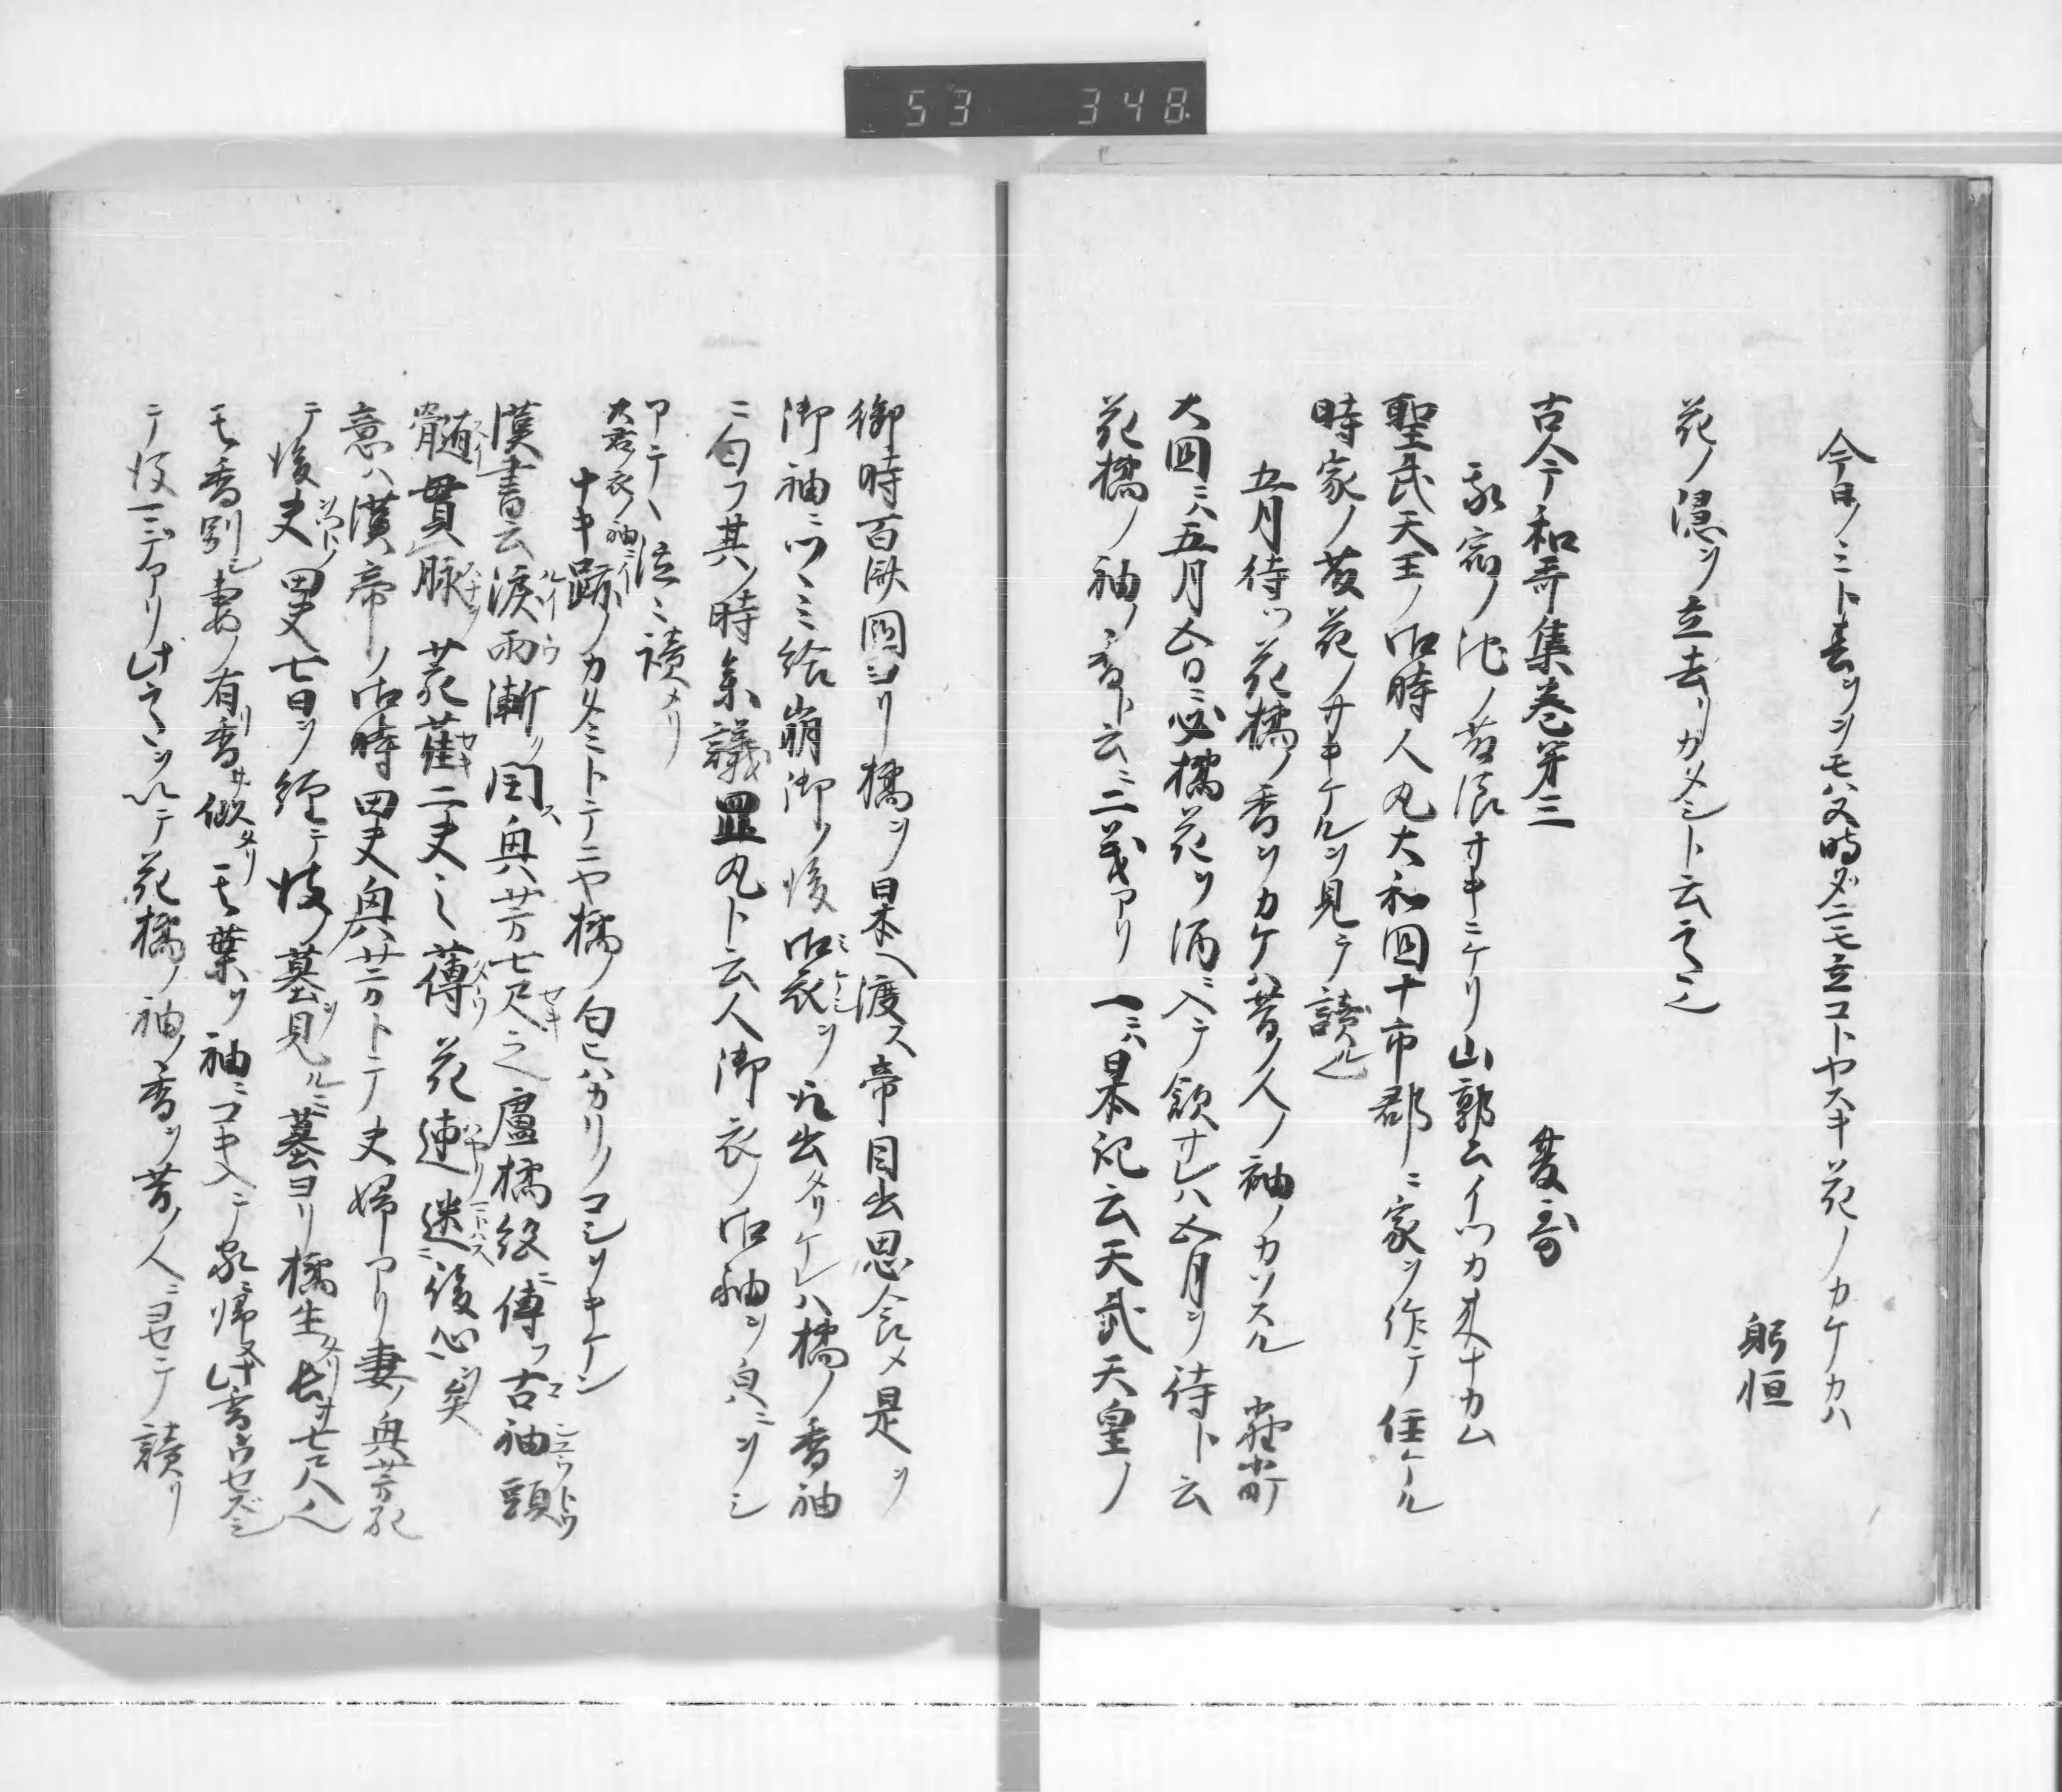 53 348
今日ノミト春ヲヲモハヌ時ダニモ立コトヤスキ花ノカケカハ
躬恒
花ノ隠ヲ立去リカタシト云也
古今和哥集巻第三
夏哥
我宿ノ池ノ藤浪サキニケリ山郭公イツカ来ナカム
聖武天王ノ御時人丸大和国十市郡ニ家ヲ作テ住ケル
時家ノ藤花ノサキケルヲ見テ読ル也
五月待ツ花橘ノ香ヲカケハ昔ノ人ノ袖ノカソスル 小町
大国ニハ五月五日ニ必橘花ヲ酒ニ入テ飲ナレハ五月ヲ待ト云
花橘ノ袖ノ香ト云ニ二義アリ一ニハ日本記云天武天皇ノ
御時百済国ヨリ橘ヲ日本ヘ渡ス帝目出思食メ是ヲ
御袖ニツヽミ給崩御ノ後御衣ヲ取出タリケレハ橘ノ香袖
ニ匂フ其ノ時参議 丸ト云人御衣ノ御袖ヲ ニヲシ
アテヽ泣ミ読メリ
大君ノ衣ノ袖ニ
ナキ跡ノカタミトテニヤ橘ノ匂ヒハカリノコシヲキケン
漢書云涙雨漸ク閏ス與芳七尺之盧橘終ニ傳フ古袖頭
髄貫脉 花 二丈之薄花速迷ニ後心矣
意ハ漢帝ノ御時田丈與芳トテ夫婦アリ妻ノ與芳死
テ後夫ノ田丈七日ヲ経テ彼ノ墓ヲ見ルニ墓ヨリ橘生タリ長サ七尺八也
其香別シ妻ノ有シ香ニ似タリ其葉ヲ袖ニコキ入テ家ニ帰ヌ此香ウセズシ
テ後 アリ此 ヲ テ花橘ノ袖ノ香ヲ昔ノ人ニヨセテ読リ